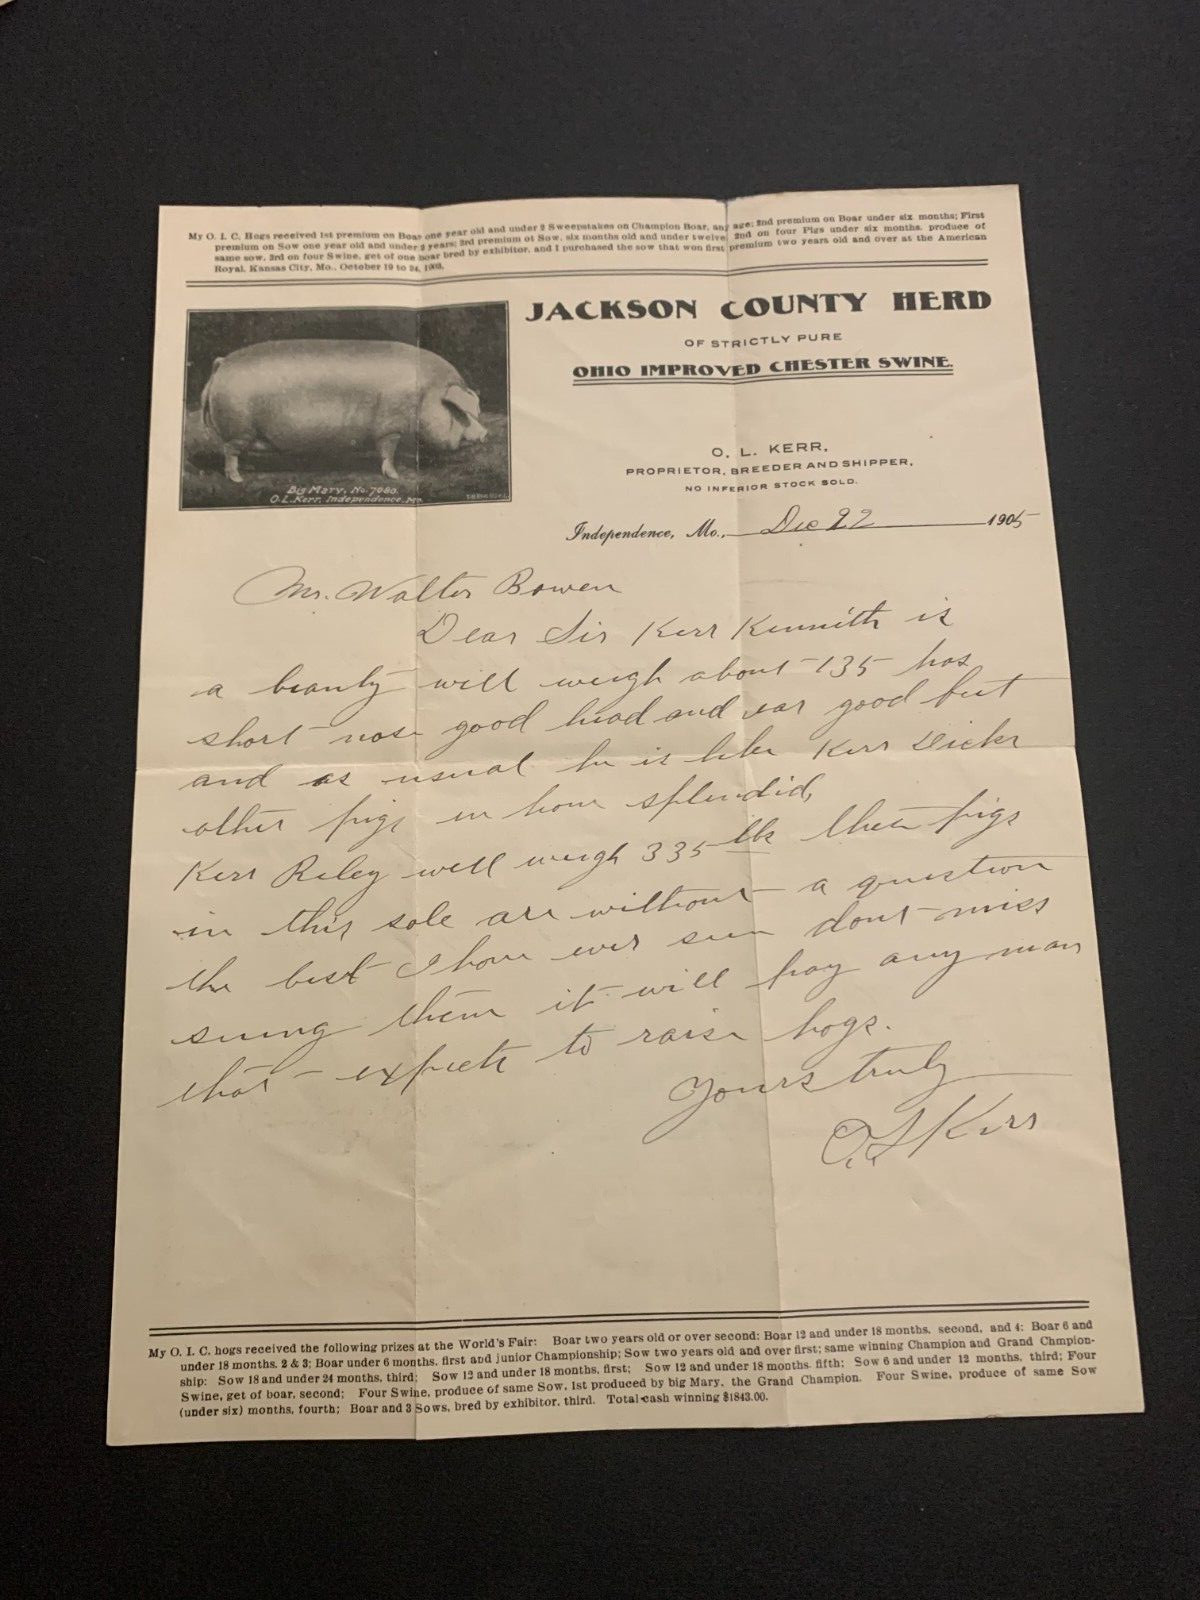 My O. I. C. Hogs received 1st premium on Boar one year old and under 2 Sweepstakes on Champion Boar, any age; 2nd premium on Boar under six months; First
premium on Sow one year old and under 2 years; 3rd premium ot Sow, six months old and under twelve; 2nd on four Pigs under six months, produce of
same sow, 3rd on four Swine, get of one boar bred by exhibitor, and I purchased the sow that won first premium two years old and over at the American
Royal, Kansas City, Mo., October 19 to 24, 1903.
JACKSON COUNTY HERD
OF STRICTLY PURE
OHIO IMPROVED CHESTER SWINE.
Big Mary, No. 7080.
O.L. Kerr. Independence. Mo.
O. L. KERR,
PROPRIETOR, BREEDER AND SHIPPER,
NO INFERIOR STOCK SOLD.
Independence, Mo., Dec 22 1905
Mr. Walter Bowen
Dear Sir Kerr Kennith is
a beauty will weigh about 135 has
short nose good head and ear good feet
and as usual he is like Kerr Dicks
other pigs in bone splendid,
Kerr Riley will weigh 335 lbs these pigs
in this sale are without a question
the best I have ever seen dont miss
seeing them it will pay any man
that expects to raise hogs.
Yours truly
O. L. Kerr
My O. I. C. hogs received the following prizes at the World's Fair: Boar two years old or over second: Boar 12 and under 18 months, second, and 4: Boar 6 and
under 18 months, 2 & 3; Boar under 6 months, first and junior Championship; Sow two years old and over first; same winning Champion and Grand Chmpion-
ship: Sow 18 and under 24 months, third; Sow 12 and under 18 months, first; Sow 12 and under 18 months. fifth; Sow 6 and under 12 months, third; Four
Swine, get of boar, second; Four Swine, produce of same Sow, 1st produced by big Mary, the Grand Champion. Four Swine, produce of same Sow
(under six) months, fourth; Boar and 3 Sows, bred by exhibitor, third. Total cash winning $1843.00.